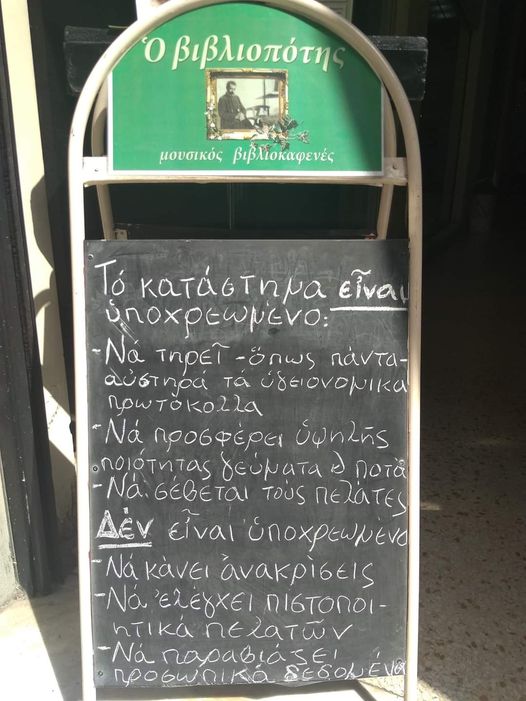 Ὁ βιβλιοπότης
μουσικός βιβλιοκαφενές
Τό κατάστημα εἶναι
ὑποχρεωμένο:
-Νά τηρεῖ -ὅπως πάντα-
αὐστηρά τά ὑγειονομικά
πρωτόκολλα
-Νά προσφέρει ὑψηλῆς
ποιότητας γεύματα & ποτά
-Νά σέβεται τούς πελάτες
Δέν εἶναι ὑποχρεωμένο
-Νά κάνει ἀνακρίσεις
-Νά ἐλέγχει πιστοποι-
ητικά πελατῶν
-Νά παραβιάζει
προσωπικά δεδομένα